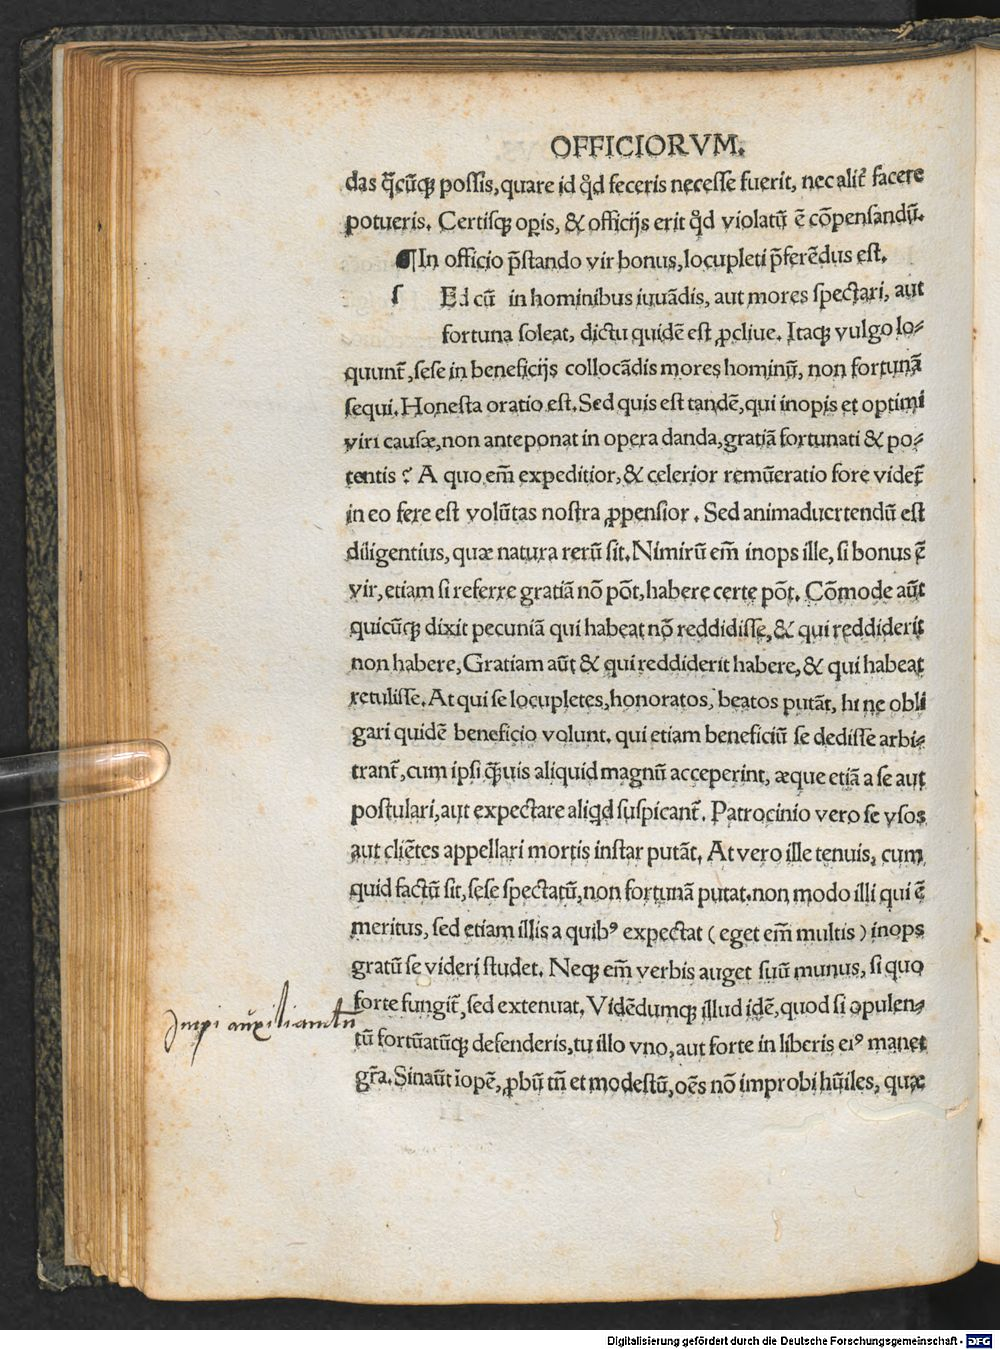 OFFICIORVM.
das q̃cũqꝫ possis, quare id qd̉ feceris necesse fuerit, nec alit̃ facere
potueris. Certisqꝫ oꝑis, & officijs erit qd̉ violatũ ẽ cõpensandũ.
¶In officio p̃stando vir bonus, locupleti p̃ferẽdus est.
ſ Ed cũ in hominibus iuuãdis, aut mores spectari, aut
fortuna soleat, dictu quidẽ est ꝓcliue. Itaqꝫ vulgo lo⸗
quunt̃, sese in beneficijs collocãdis mores hominũ, non fortunã
sequi. Honesta oratio est. Sed quis est tandẽ, qui inopis et optimi
viri causæ, non anteponat in opera danda, gratiã fortunati & po⸗
tentis? A quo em̃ expeditior, & celerior remũeratio fore videt̃
in eo fere est volũtas nostra ꝓpensior. Sed animaducrtendũ est
diligentius, quæ natura rerũ sit. Nimirũ em̃ inops ille, si bonus ẽ
vir, etiam si referre gratiã nõ põt, habere certe põt. Cõmode aũt
quicũqꝫ dixit pecuniã qui habeat nõ reddidisse, & qui reddiderit
non habere, Gratiam aũt & qui reddiderit habere, & qui habeat
retulisse. At qui se locupletes, honoratos, beatos putãt, hi ne obli
gari quidẽ beneficio volunt. qui etiam beneficiũ se dedisse arbi⸗
trant̃, cum ipsi q̃uis aliquid magnũ acceperint, æque etiã a se aut
postulari, aut expectare aliqd suspicant̃. Patrocinio vero se vsos
aut cliẽtes appellari mortis instar putãt. At vero ille tenuis, cum
quid factũ sit, sese spectatũ, non fortunã putat. non modo illi qui ẽ
meritus, sed etiam illis a quibꝰ expectat (eget em̃ multis) inops
gratũ se videri studet. Neqꝫ em̃ verbis auget suũ munus, si quo
forte fungit̃, sed extenuat. Vidẽdumqꝫ illud idẽ, quod si opulen⸗
tũ fortũatũqꝫ defenderis, tu illo vno, aut forte in liberis eiꝰ manet
gr̃a. Sinaũt ĩopẽ, ꝓbũ tñ et modestũ, oẽs nõ improbi hũiles, quæ
Digitalisierung gefördert durch die Deutsche Forschungsgemeinschaft - DFG